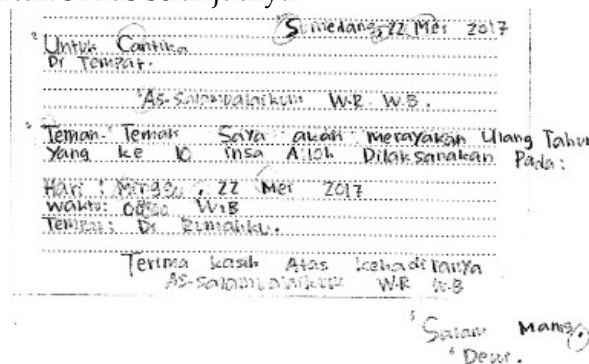 Sumedang, 22 Mei 2017
Untuk Cantika
Di Tempat.
As-Salamualaikum W.R W.B.
Teman-Teman Saya akan merayakan Ulang Tahun
Yang ke 10 insa Alloh Dilaksanakan Pada:
Hari : Minggu, 22 Mei 2017
Waktu: WIB
Tempat: Di Rumahku.
Terima kasih Atas kehadiranya
As-Salamualaikum W.R W.B
Salam Manis.
Dewi.